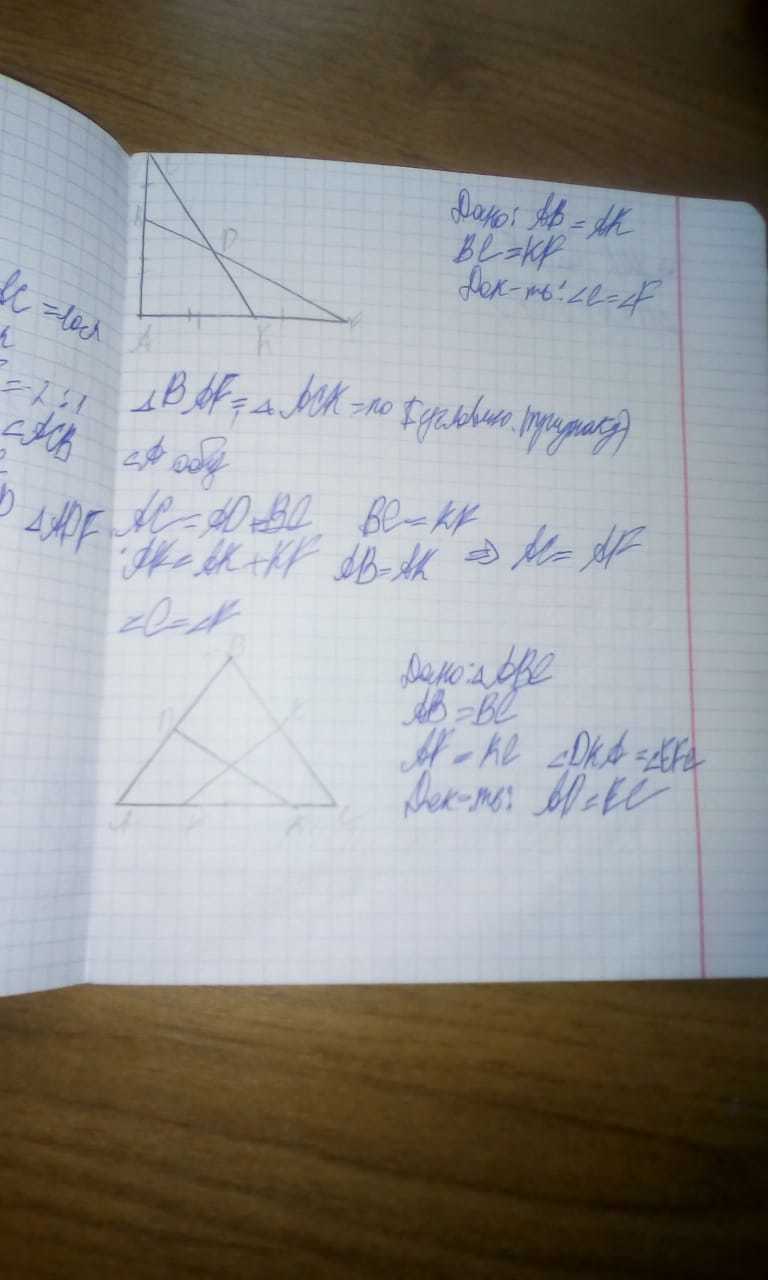 D
A
K
F
Дано: AB = AK
BC = KF
Док-ть: ∠C = ∠F
△BAF = △ACK = по I (признаку)
∠A общ
AC = AD + BC BC = KF
AK = AK + KF AB = AK ⇒ AC = AF
∠C = ∠F
BC =
= 2:1
∠ACB
D △ADF
B
D
E
A
F
K
C
Дано: △ABC
AB = BC
AF = KC ∠DKA = ∠EFC
Док-ть: AD = EC